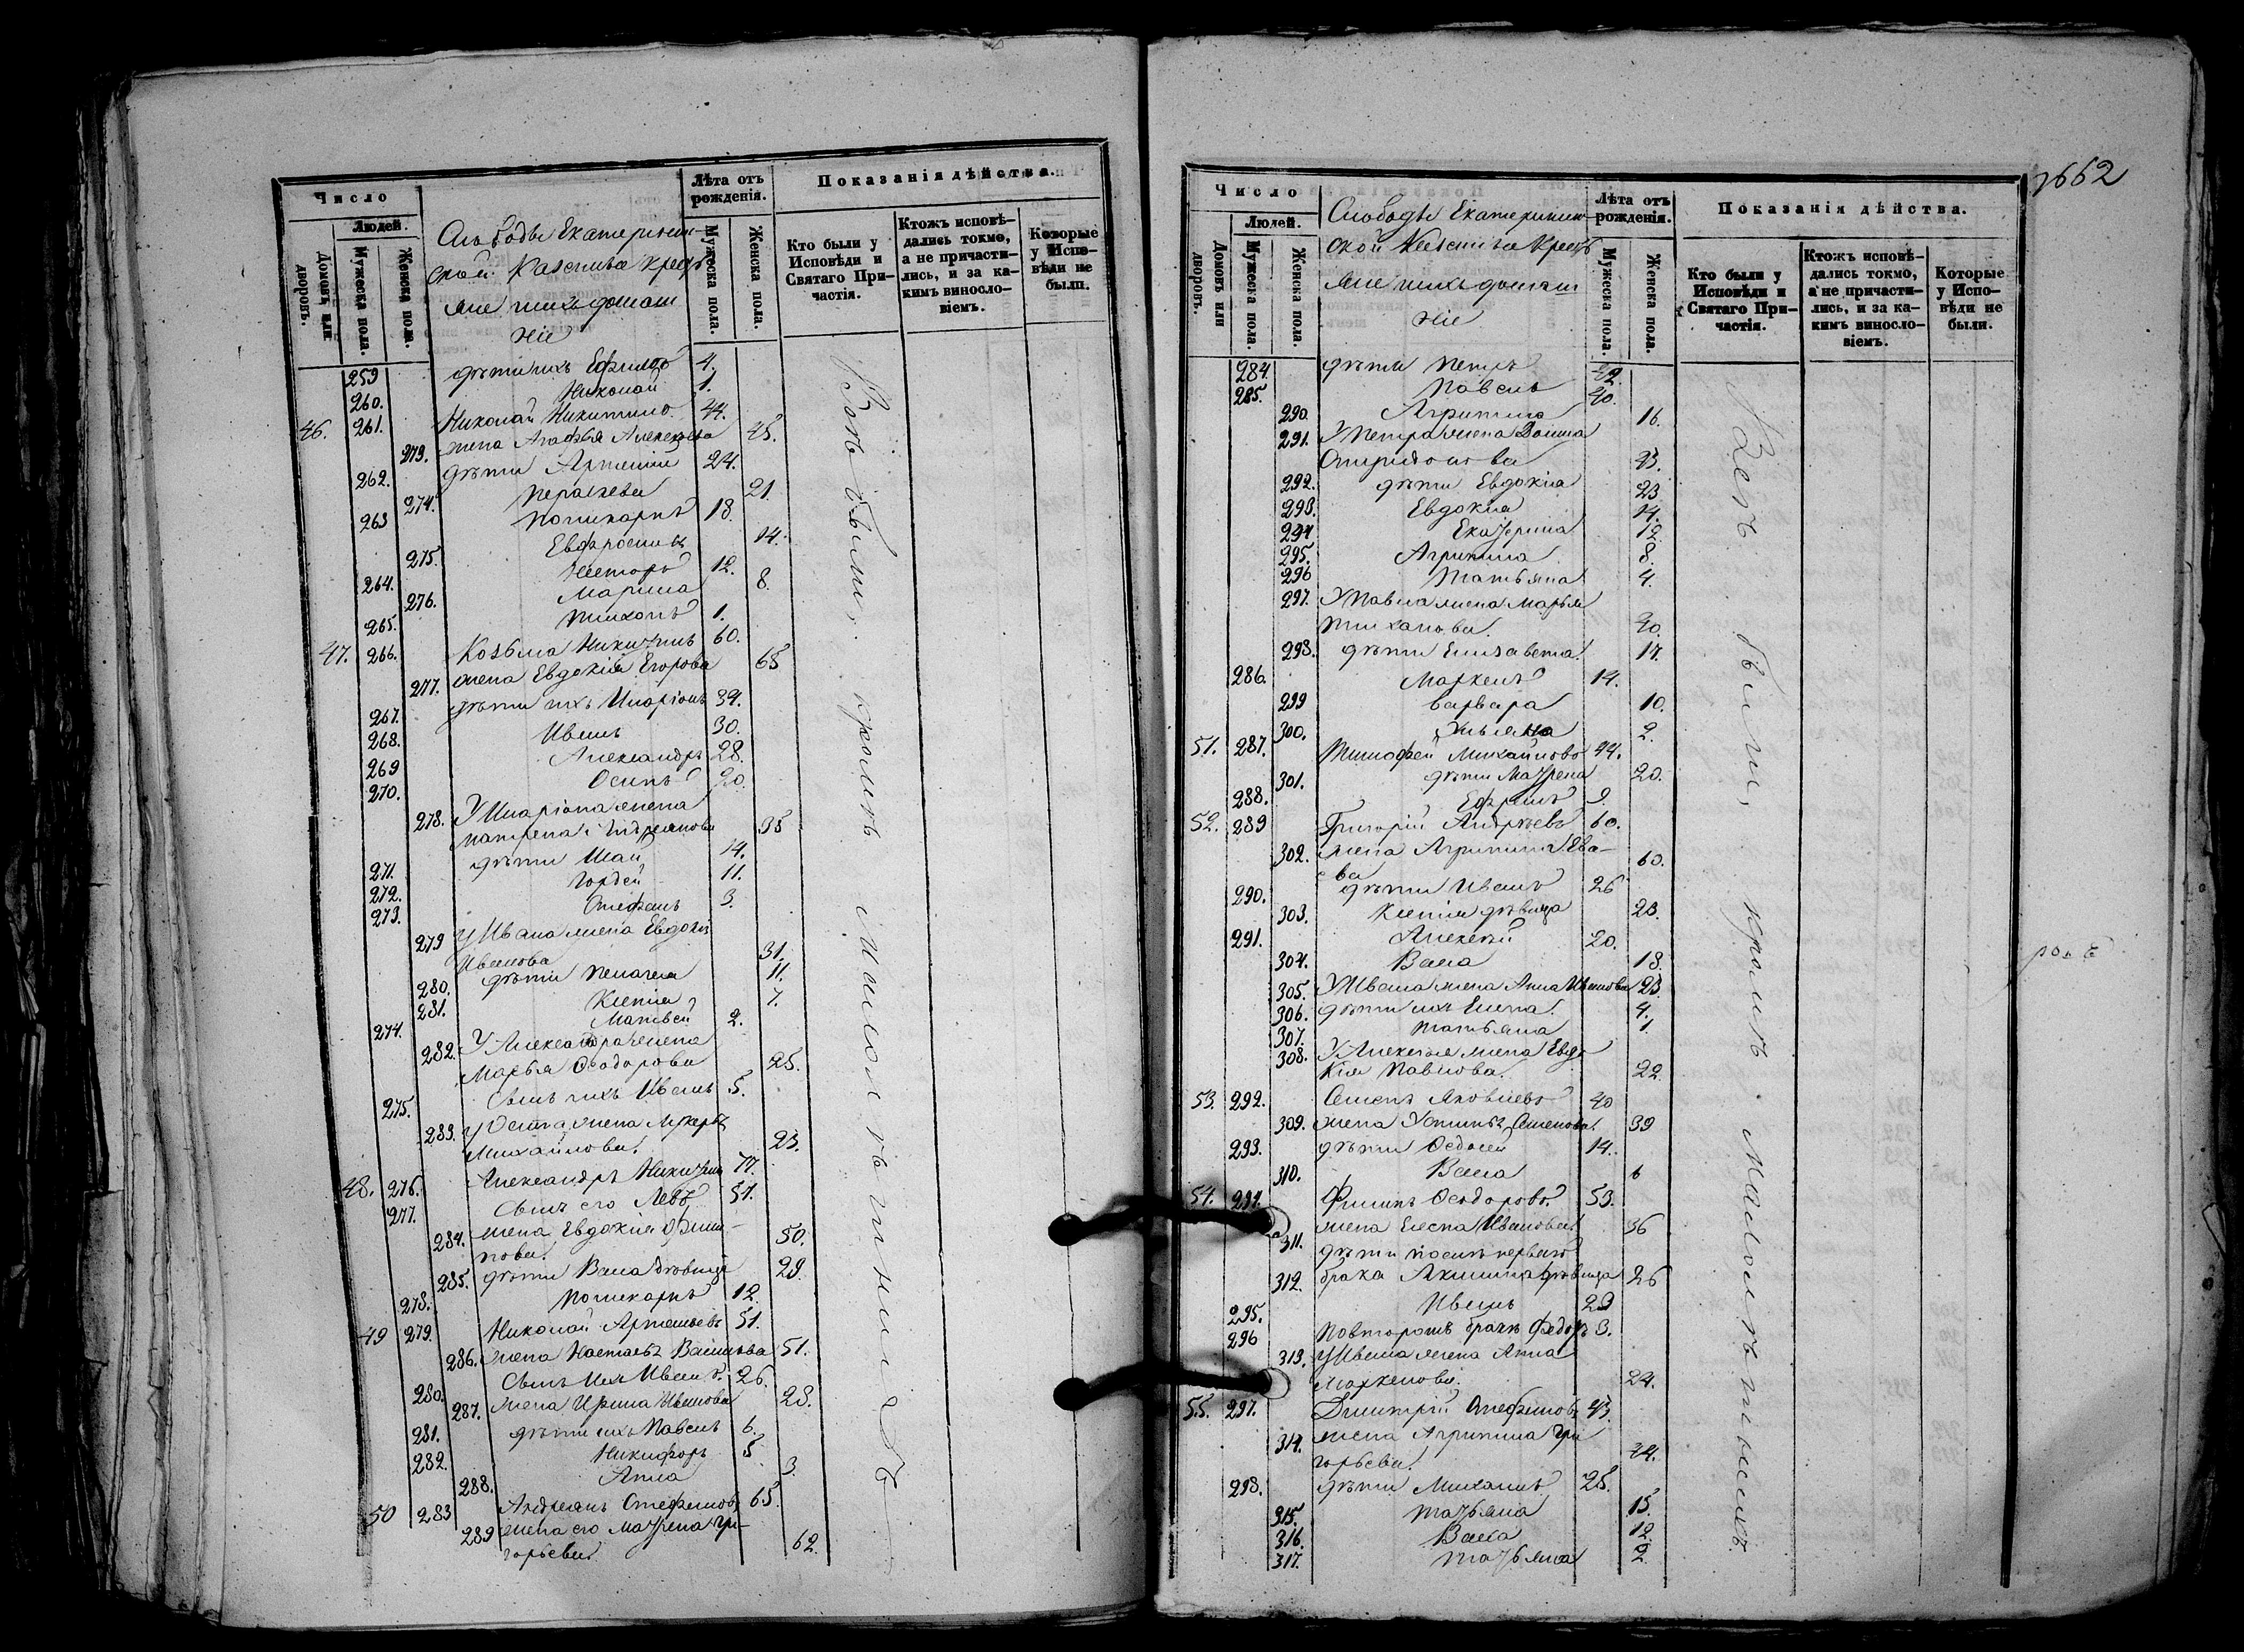 Число
Людей.
Домовъ или дворовъ.
Мужеска пола.
Женска пола.
Слободы Екатеринин-
ской Казенные кресть
яне ихъ домаш
ніе
Лѣта отъ рожденія.
Мужеска пола.
Женска пола.
Показанія дѣйства.
Кто были у Исповѣди и Святаго Причастія.
Ктожъ исповѣдались токмо, а не причастились, и за какимъ винословіемъ.
Которые у Исповѣди не были.
259 дѣти ихъ Ефимъ 4.
260. Николай 1.
46. 261. Николай Никитинъ 44.
273. жена Агафья Алексѣева 45.
262. дѣти Артемій 24.
274. Параскева 21.
263 Поликарпъ 18.
275. Евфросинія 14.
264. Несторъ 12.
276. Марина 8.
265. Тихонъ 1.
47. 266. Козьма Никитинъ 60.
277. жена Евдокія Егорова 65
267. дѣти ихъ Иларіонъ 39.
268. Иванъ 30.
269 Александръ 28.
270. Осипъ 20.
278. У Иларіона жена
Матрена Андреянова 35
271. дѣти Исай 14.
272. Гордей 11.
273. Стефанъ 3.
279 У Ивана жена Евдокія
Иванова 31.
280. дѣти Пелагея 11.
281. Ксенія 7.
274. Матвей 2.
282. У Александра жена
Марья Ѳеодорова 25.
275. Сынъ ихъ Иванъ 5.
283. У Осипа жена Лукерья
Михайлова 23.
48. 276. Александръ Никитинъ 77.
277. Сынъ его Левъ 51.
284. жена Евдокія Фили-
пова 50.
285. дѣти Васса дѣвица 29.
278. Поликарпъ 12.
49 279. Николай Артемьевъ 51.
286. жена Настасья Васильева 51.
280. Сынъ ихъ Иванъ 26.
287. жена Ирина Иванова 28.
281. дѣти ихъ Павелъ 6.
282. Никифоръ 5
288. Анна 3.
50 283 Андреянъ Стефановъ 65.
289 жена его Матрена Гри-
горьева 62.
Всѣ были, кромѣ малолѣтнихъ
1662
Число
Людей.
Домовъ или дворовъ.
Мужеска пола.
Женска пола.
Слободы Екатеринин-
ской Казенные кресть
яне ихъ домаш
ніе
Лѣта отъ рожденія.
Мужеска пола.
Женска пола.
Показанія дѣйства.
Кто были у Исповѣди и Святаго Причастія.
Ктожъ исповѣдались токмо, а не причастились, и за какимъ винословіемъ.
Которые у Исповѣди не были.
284. дѣти Петръ 42.
285. Павелъ 40.
290. Агрипина 16.
291. У Петра жена Домна
Спиридонова 43.
292. дѣти Евдокіа 23
293. Евдокіа 14.
294 Екатерина 12.
295. Агрипина 8.
296 Татьяна 4.
297. У Павла жена Марья
Тиханова. 40.
298. дѣти Елизавета 17.
286. Маркелъ 14.
299 Варвара 10.
300. Ульяна 2.
51. 287. Тимофей Михайловъ 44.
301. дѣти Матрена 20.
288. Ефремъ 9.
52. 289 Григорій Андреевъ 60.
302. жена Агрипина
60.
290. дѣти Иванъ 26
303. Ксенія дѣвица 23.
291. Алексѣй 20.
304. Васса 18.
305. У Ивана жена Анна Иванова 23.
306. дѣти ихъ Елена 4.
307. Татьяна 1.
308. У Алексѣя жена Евдо
кія Павлова. 22.
53. 292. Семенъ Яковлевъ 40
309. жена Устинья Семенова. 39
293. дѣти Ѳедосей 14.
310. Васса 6
54. 294. Филипъ Ѳеодоровъ 53.
311. жена Елена Иванова 36
дѣти после перваго
312. брака Акилина дѣвица 26
295. Иванъ 23
296 Повторомъ бракѣ Федоръ 3.
313. У Ивана жена Анна
Маркелова. 24.
55. 297. Димитрій Стефановъ 43.
314. жена Агрипина Гри
горьева. 44.
298. дѣти Михаилъ 25.
315. Татьяна 15.
316. Васса 12.
317. Татьяна 2.
Всѣ были, кромѣ малолѣтнихъ